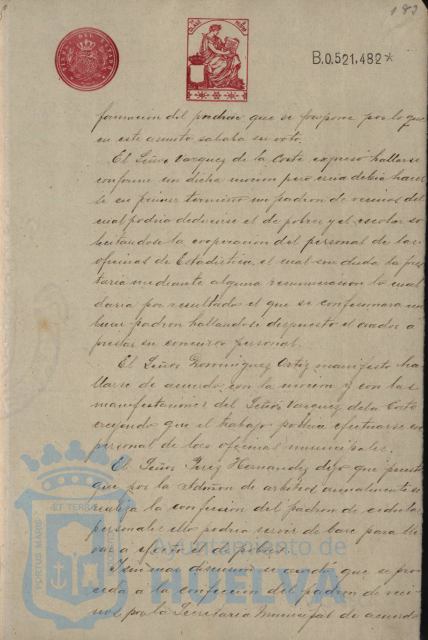 183
B.0.521.482*
formacion del padron que se propone por lo que
en este asunto salvaba su voto.
El Señor Vazquez de la Corte expresó hallarse
conforme en dicha mocion pero creia debia hacer
se en primer termino un padron de vecinos del
cual podria deducirse el de pobres y el escolar so
licitandose la cooperacion del personal de las
oficinas de Estadistica, el cual sin duda la pres
taria mediante alguna remuneracion lo cual
daria por resultado el que se confeccionara un
buen padron hallandose dispuesto el orador a
prestar su concurso personal.
El Señor Dominguez Ortiz manifestó ha
llarse de acuerdo con la mocion y con las
manifestaciones del Señor Vazquez de la Corte
creyendo que el trabajo podria efectuarse con
personal de las oficinas municipales.
El Señor Perez Hernandez dijo que puesto
que por la Admon de arbitrios anualmente se
realiza la confesion del padron de cedulas
personales ello podria servir de base para lle
var a efecto el de pobres.
Y sin mas discusion se acordó que se pro
ceda a la confeccion del padron de veci
nos por la Secretaria Municipal de acuerdo
PORTUS MARIS
ET TERRAE
Ayuntamiento de
HUELVA